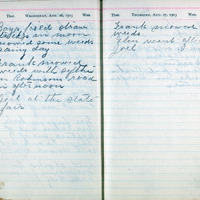 Ther. WEDNESDAY, AUG. 26, 1903 Wea.
Boys hold straw
in noon
mowed some weeds
rainy day
Frank mowed
weeds with sythe
on Robinsons road
in afternoon
Joel at the state
fair
Ther. THURSDAY, AUG. 27, 1903 Wea.
Frank mowed
weeds
Glen went after
Joel